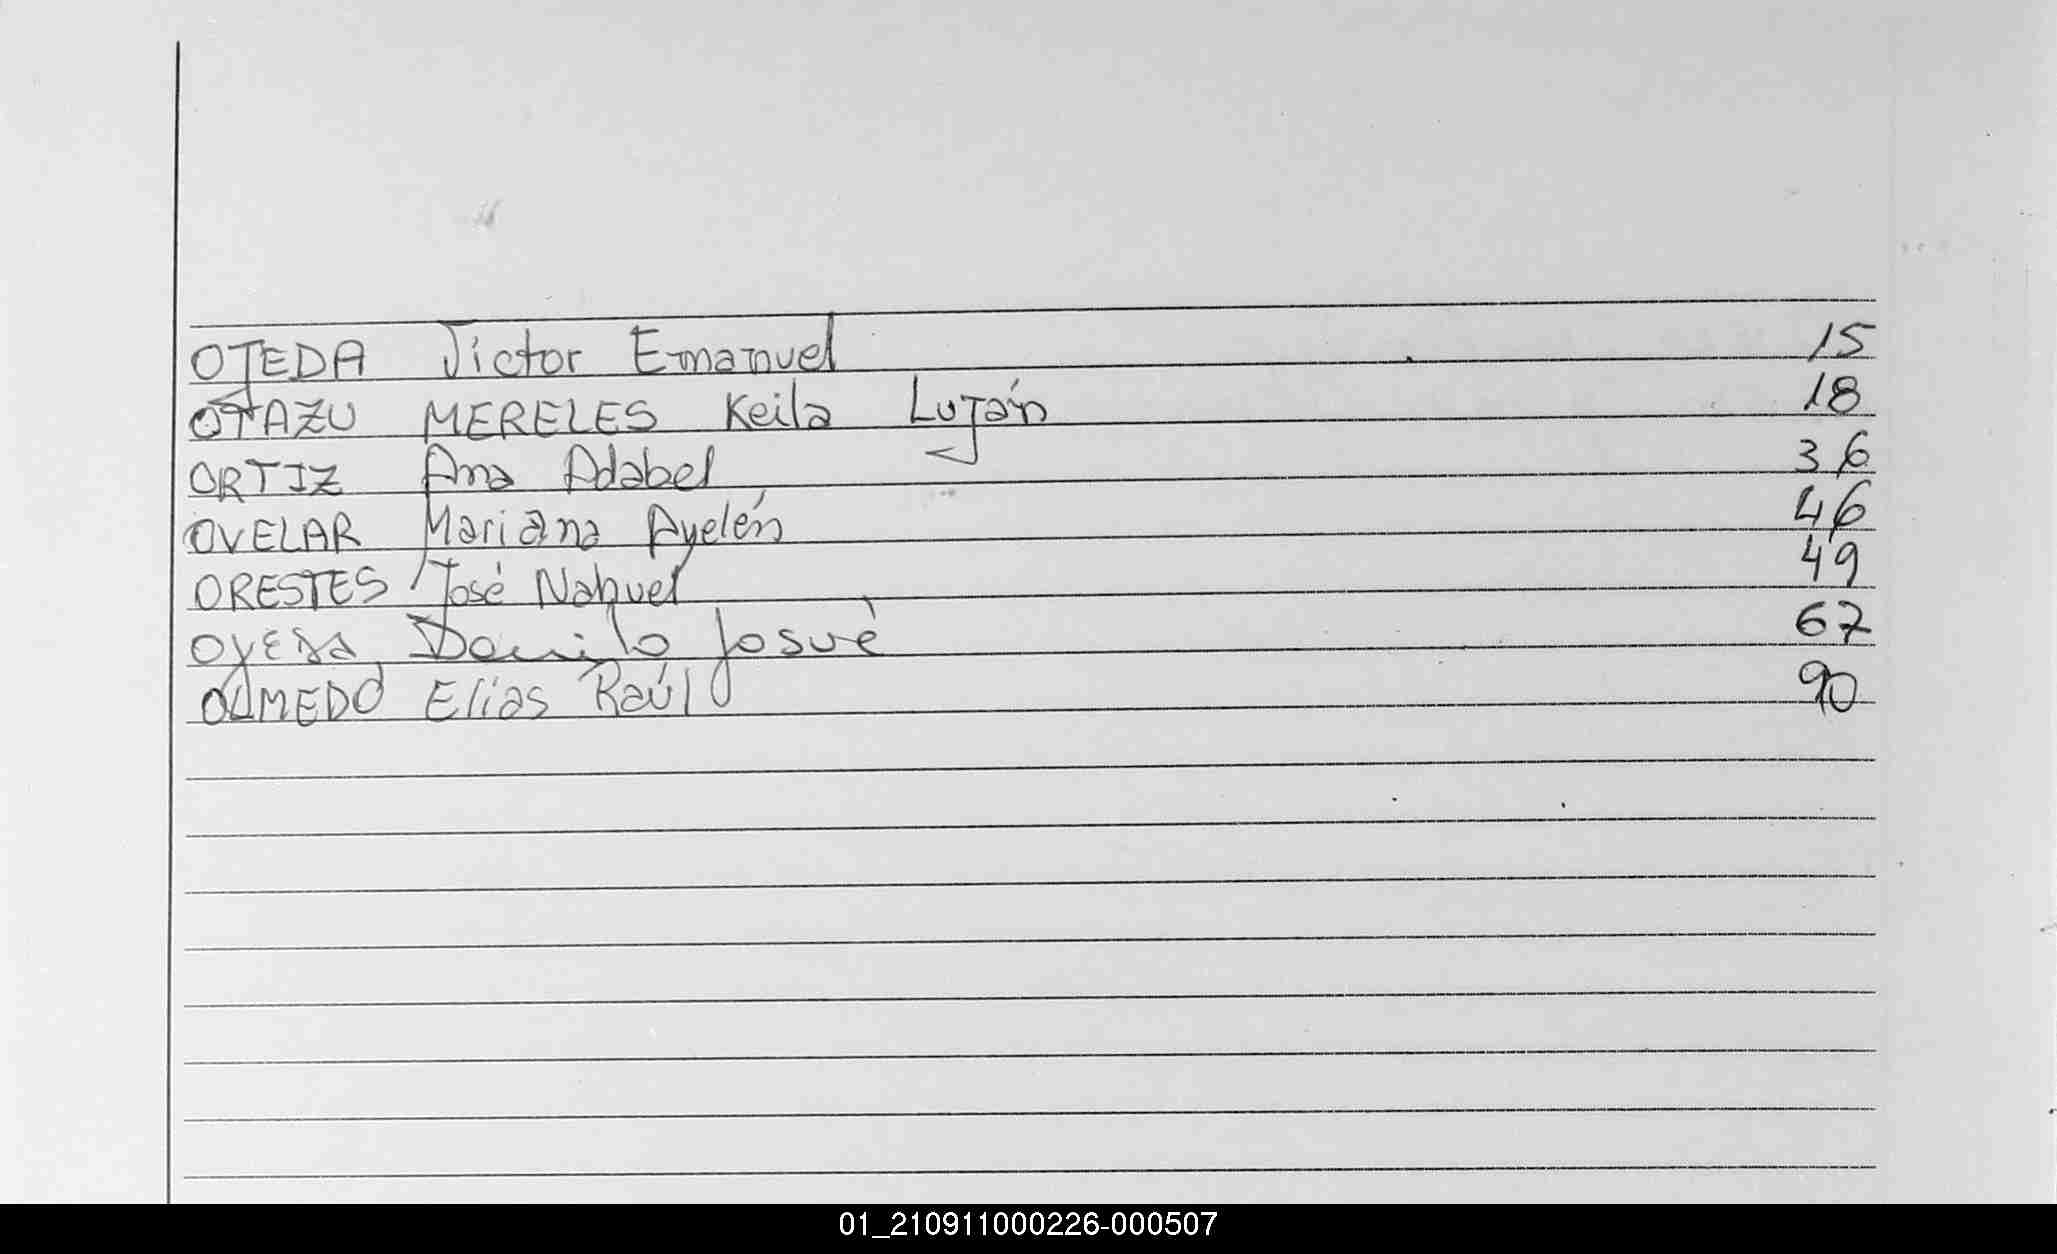 OJEDA Victor Emanuel 15
OTAZU MERELES Keila Luján 18
ORTIZ Ana Adabel 36
OVELAR Mariana Ayelén 46
ORESTES José Nahuel 49
OJEDA Danilo Josué 67
OLMEDO Elías Raúl 90
01_210911000226-000507